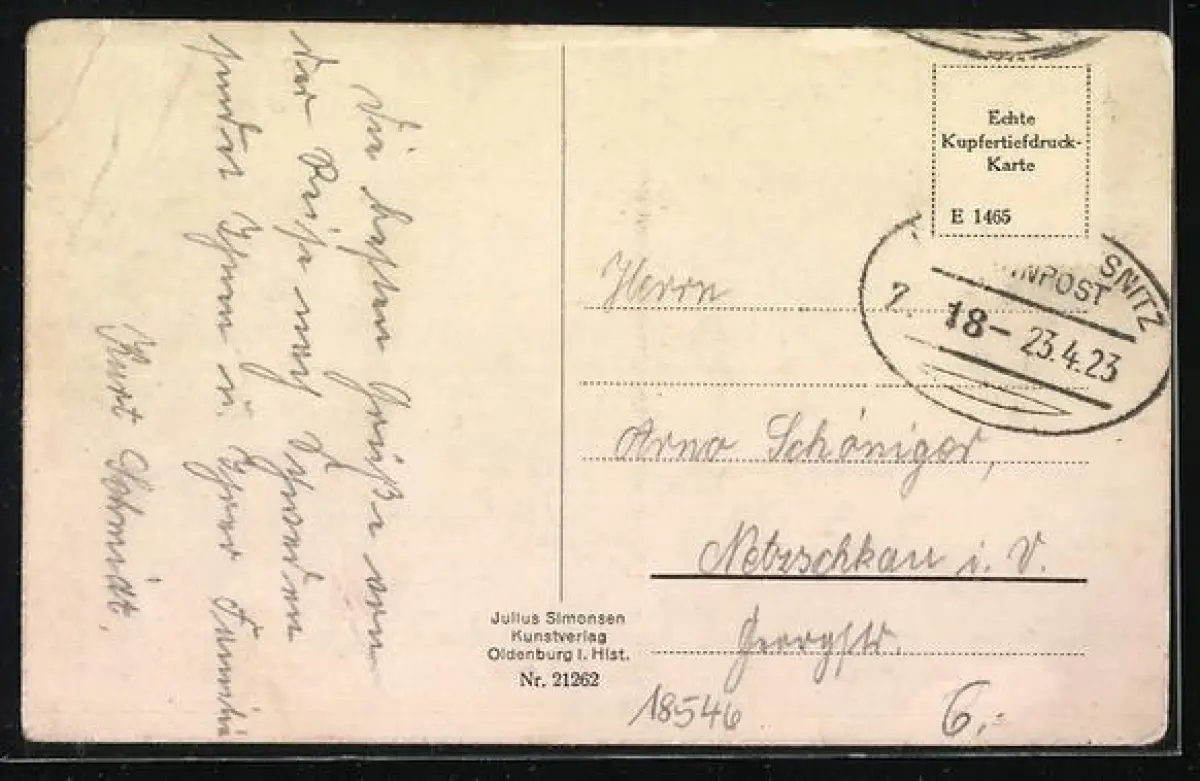 Die besten Grüße von
der Reise nach Schweden
sendet Ihnen u. Ihrer Familie
Kurt Schmidt.
Echte
Kupfertiefdruck-
Karte
E 1465
SNITZ
NPOST
18- 23.4.23
Herrn
Arno Schöniger,
Netzschkau i. V.
Georgstr.
Julius Simonsen
Kunstverlag
Oldenburg i. Hlst.
Nr. 21262
18546
6.-